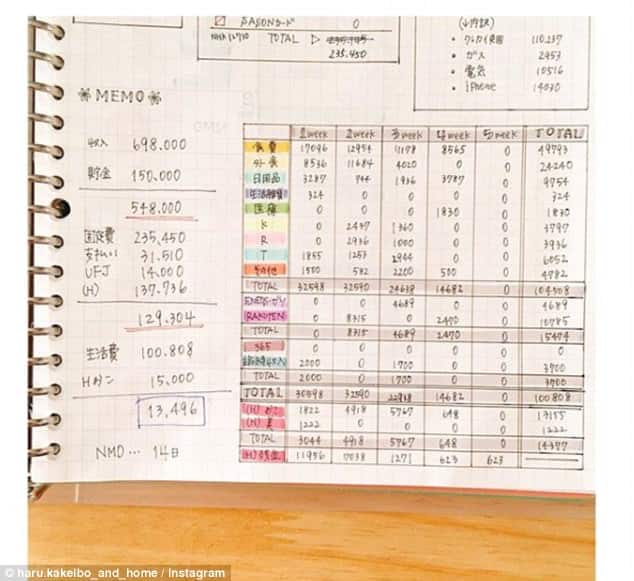 カード 0
TOTAL ▷
235.450
(↓内訳)
110.237
・ガス 2953
・電気 10516
・iPhone 14030
❀MEMO❀
収入 698.000
貯金 150.000
548.000
固定費 235,450
支払い 31.510
UFJ 14.000
(H) 137.736
129.304
生活費 100.808
15,000
13,496
NMD… 14日
1week 2week 3week 4week 5week TOTAL
食費 17096 12954 11178 8565 0 49793
外食 8536 11684 4020 0 0 24240
日用品 3287 744 1936 3787 0 9754
324 0 0 0 0 324
医療 0 0 0 1830 0 1830
K 0 2437 1360 0 0 3797
R 0 2936 1000 0 0 3936
T 1855 1253 2944 0 0 6052
その他 1500 582 2200 500 0 4782
TOTAL 32598 32590 24638 14682 0 104508
0 0 4689 0 0 4689
RAKUTEN 0 8315 0 2470 0 10785
TOTAL 0 8315 4689 2470 0 15474
365 0 0 0 0 0 0
2000 0 1700 0 0 3700
TOTAL 2000 0 1700 0 0 3700
TOTAL 30598 32590 22938 14682 0 100808
(H) 1822 4918 5767 648 0 13155
(H) 1222 0 0 0 0 1222
TOTAL 3044 4918 5767 648 0 14377
(H) 残金 11956 7038 1271 623 623
© haru.kakeibo_and_home / Instagram